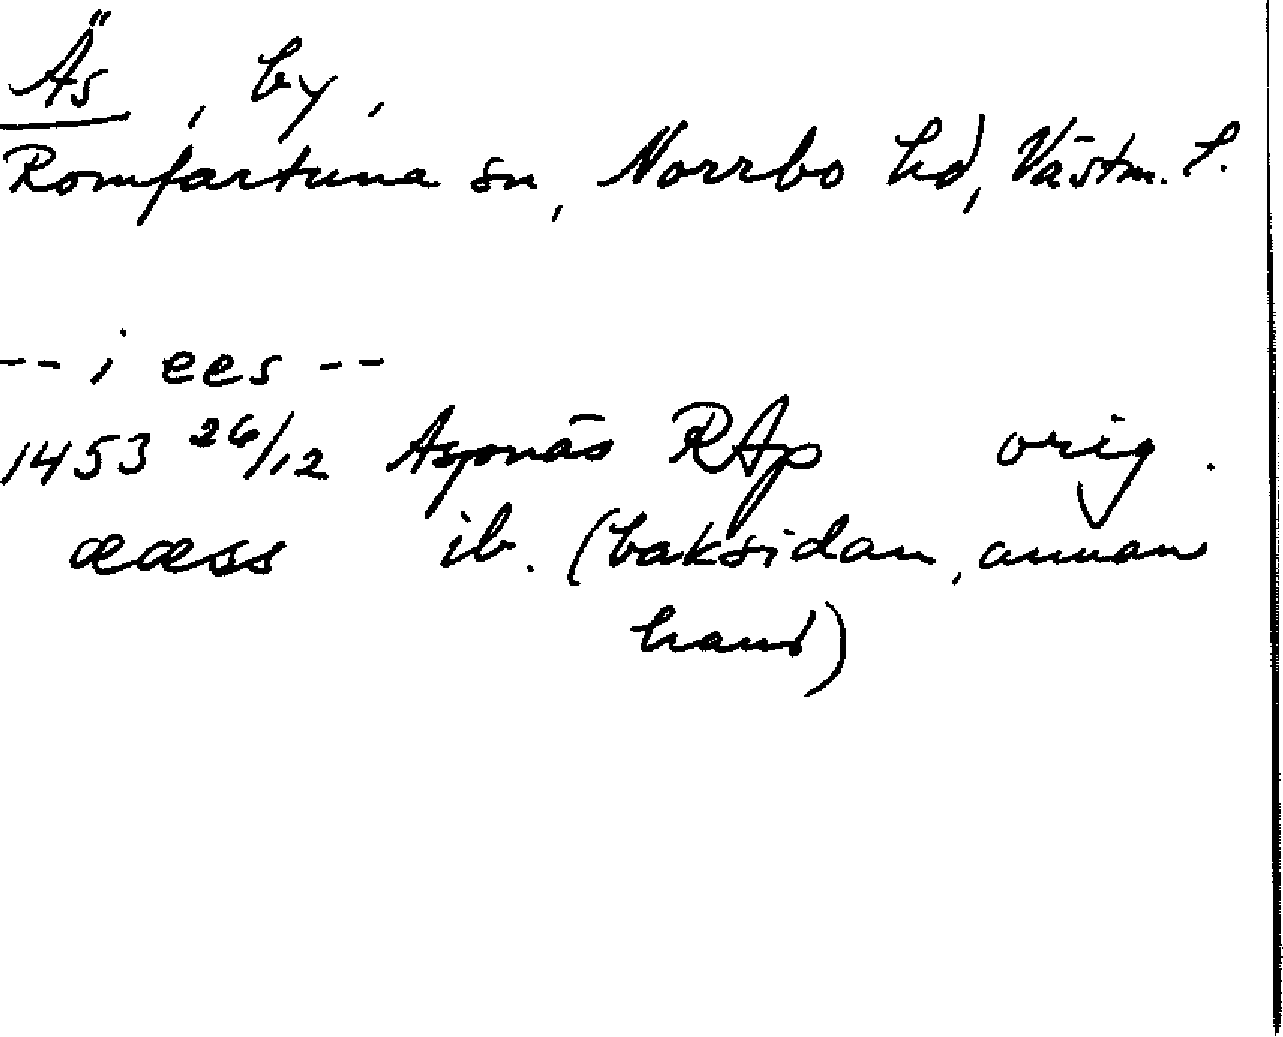 Äs, by,
Romfartuna sn, Norrbo hd, Västm. l.
-- i ees --
1453 26/12 Aspnäs RAp orig.
ææss ib. (baksidan, annan
hand)